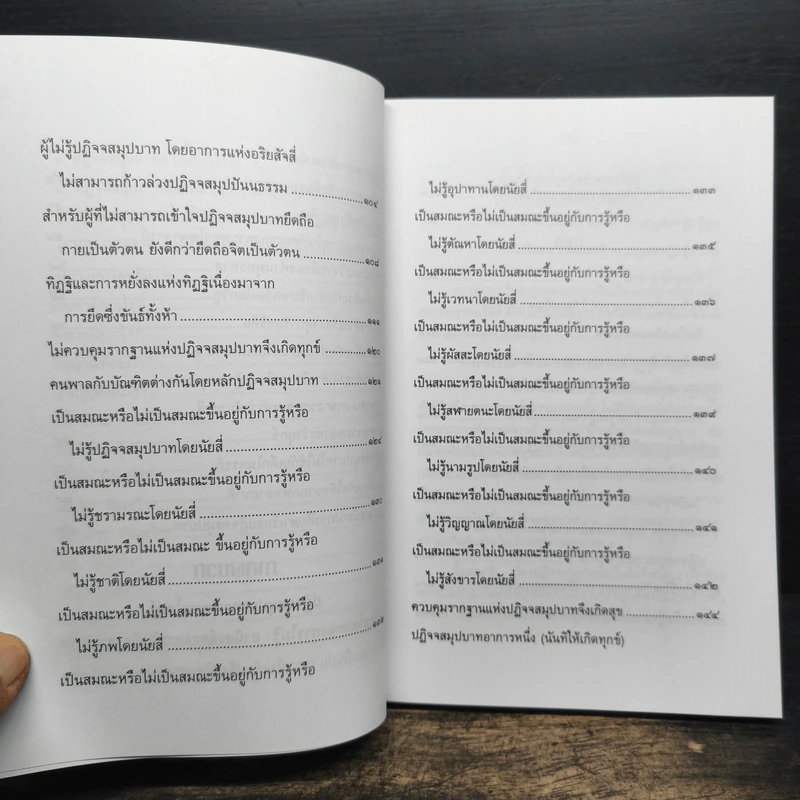 ผู้ไม่รู้ปฏิจจสมุปบาท โดยอาการแห่งอริยสัจสี่
ไม่สามารถก้าวล่วงปฏิจจสมุปปันนธรรม ........................ ๑๐๔
สำหรับผู้ที่ไม่สามารถเข้าใจปฏิจจสมุปบาทยึดถือ
กายเป็นตัวตน ยังดีกว่ายึดถือจิตเป็นตัวตน ................ ๑๐๘
ทิฏฐิและการหยั่งลงแห่งทิฏฐิเนื่องมาจาก
การยึดซึ่งขันธ์ทั้งห้า ........................ ๑๑๑
ไม่ควบคุมรากฐานแห่งปฏิจจสมุปบาทจึงเกิดทุกข์ ............ ๑๒๐
คนพาลกับบัณฑิตต่างกันโดยหลักปฏิจจสมุปบาท ............ ๑๒๑
เป็นสมณะหรือไม่เป็นสมณะขึ้นอยู่กับการรู้หรือ
ไม่รู้ปฏิจจสมุปบาทโดยนัยสี่ ........................ ๑๒๔
เป็นสมณะหรือไม่เป็นสมณะขึ้นอยู่กับการรู้หรือ
ไม่รู้ชรามรณะโดยนัยสี่ ........................ ๑๓๐
เป็นสมณะหรือไม่เป็นสมณะ ขึ้นอยู่กับการรู้หรือ
ไม่รู้ชาติโดยนัยสี่ ........................ ๑๓๑
เป็นสมณะหรือไม่เป็นสมณะขึ้นอยู่กับการรู้หรือ
ไม่รู้ภพโดยนัยสี่ ........................ ๑๓๒
เป็นสมณะหรือไม่เป็นสมณะขึ้นอยู่กับการรู้หรือ
ไม่รู้อุปาทานโดยนัยสี่ ........................ ๑๓๓
เป็นสมณะหรือไม่เป็นสมณะขึ้นอยู่กับการรู้หรือ
ไม่รู้ตัณหาโดยนัยสี่ ........................ ๑๓๕
เป็นสมณะหรือไม่เป็นสมณะขึ้นอยู่กับการรู้หรือ
ไม่รู้เวทนาโดยนัยสี่ ........................ ๑๓๖
เป็นสมณะหรือไม่เป็นสมณะขึ้นอยู่กับการรู้หรือ
ไม่รู้ผัสสะโดยนัยสี่ ........................ ๑๓๗
เป็นสมณะหรือไม่เป็นสมณะขึ้นอยู่กับการรู้หรือ
ไม่รู้สฬายตนะโดยนัยสี่ ........................ ๑๓๙
เป็นสมณะหรือไม่เป็นสมณะขึ้นอยู่กับการรู้หรือ
ไม่รู้นามรูปโดยนัยสี่ ........................ ๑๔๐
เป็นสมณะหรือไม่เป็นสมณะขึ้นอยู่กับการรู้หรือ
ไม่รู้วิญญาณโดยนัยสี่ ........................ ๑๔๑
เป็นสมณะหรือไม่เป็นสมณะขึ้นอยู่กับการรู้หรือ
ไม่รู้สังขารโดยนัยสี่ ........................ ๑๔๒
ควบคุมรากฐานแห่งปฏิจจสมุปบาทจึงเกิดสุข ................ ๑๔๔
ปฏิจจสมุปบาทอาการหนึ่ง (นันทิให้เกิดทุกข์)